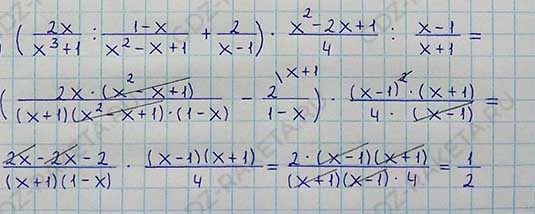 ( 2x/(x³+1) : (1-x)/(x²-x+1) + 2/(x-1) ) · (x²-2x+1)/4 : (x-1)/(x+1) =
( 2x·(x²-x+1)/((x+1)(x²-x+1)·(1-x)) - 2\x+1/(1-x) ) · (x-1)²·(x+1)/(4·(x-1)) =
(2x-2x-2)/((x+1)(1-x)) · (x-1)(x+1)/4 = 2·(x-1)(x+1)/((x+1)(x-1)·4) = 1/2